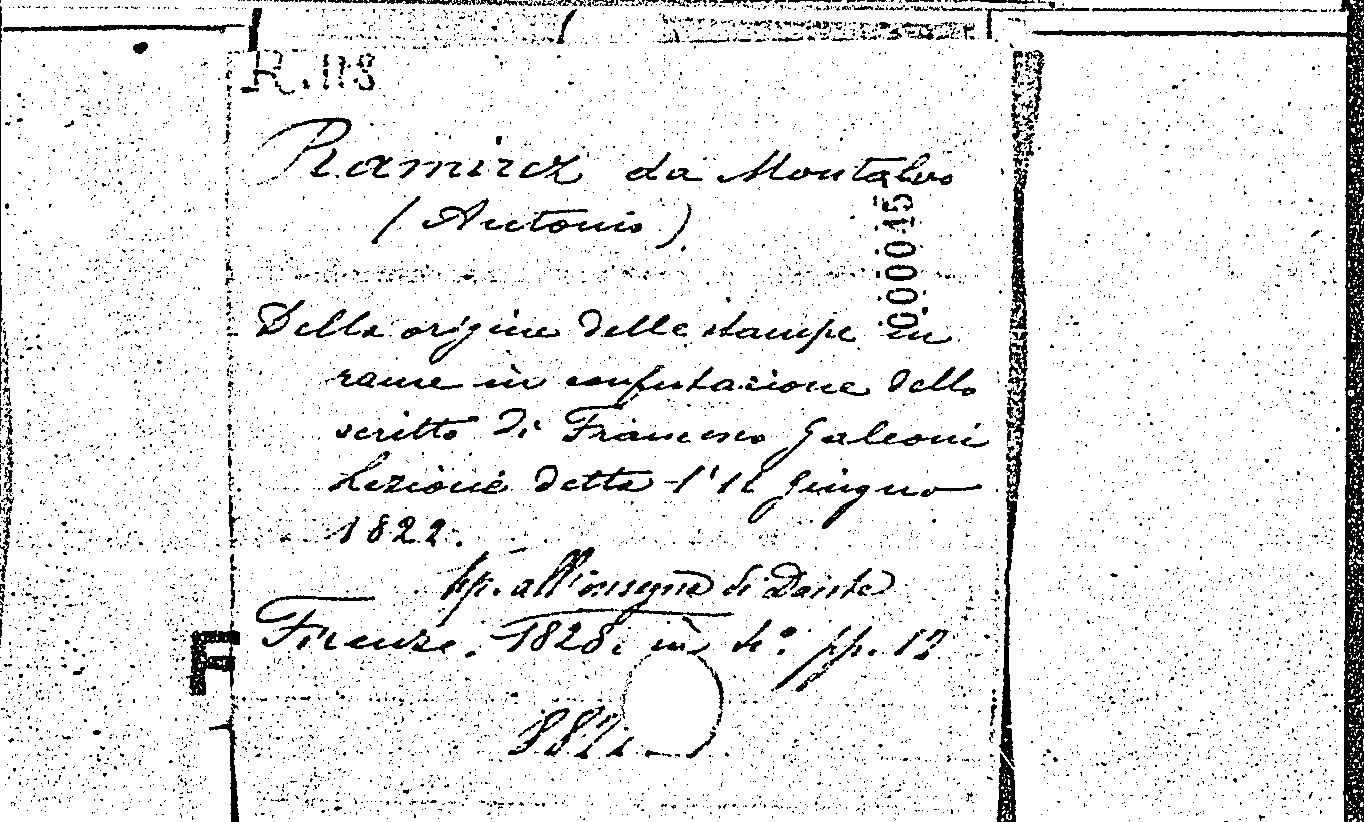 R. 118
Ramirez da Montalvo
(Antonio).
000015
Della origine delle stampe in
rame in confutazione dello
scritto di Francesco Galeoni
Lezione detta l'11 Giugno
1822.
tip. all'insegna di Dante
Firenze. 1828. in 4º. pp. 12
882.